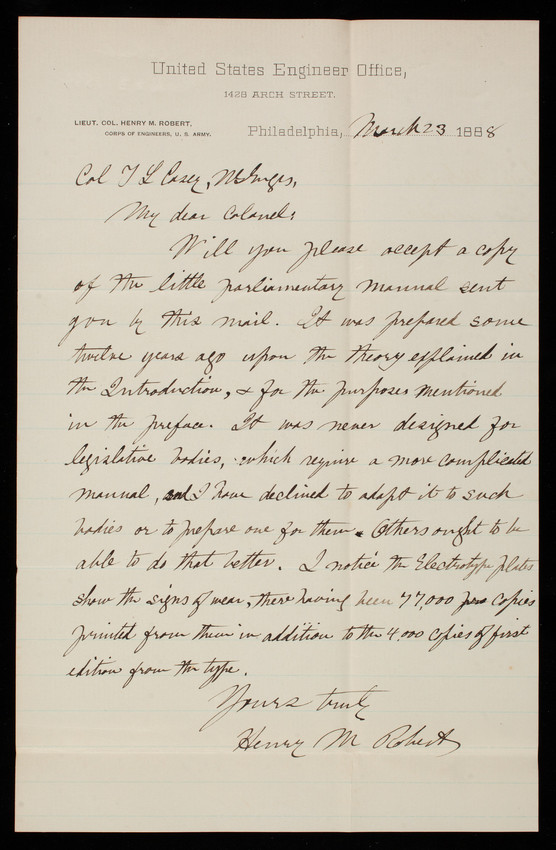 United States Engineer Office,
1428 ARCH STREET.
LIEUT. COL. HENRY M. ROBERT,
CORPS OF ENGINEERS, U. S. ARMY.
Philadelphia, March 23 1888
Col T L Casey,
My dear Colonel:
Will you please accept a copy
of the little parliamentary manual sent
you by this mail. It was prepared some
twelve years ago upon the theory explained in
the Introduction, & for the purposes mentioned
in the preface. It was never designed for
legislative bodies, which require a more complicated
manual, and I have declined to adapt it to such
bodies or to prepare one for them. Others ought to be
able to do that better. I notice the Electrotype plates
show the signs of wear, there having been 77000 copies
printed from them in addition to the 4.000 copies of first
edition from the type.
Yours truly
Henry M Robert